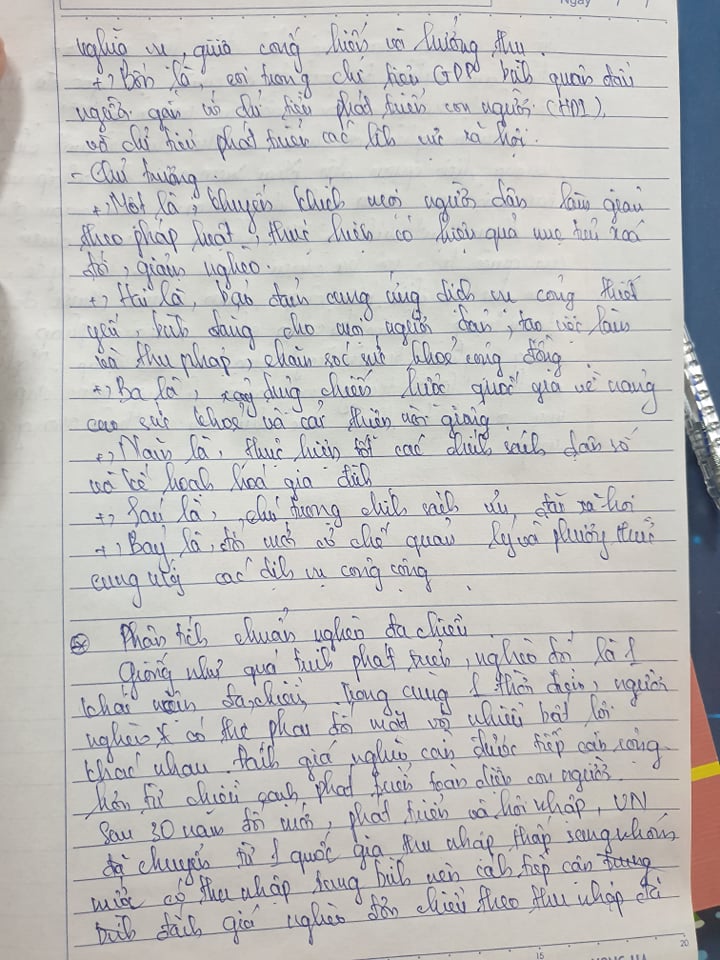 Ngày / /
nghĩa vụ, giữa cống hiến và hưởng thụ.
+, Bốn là, coi trọng chỉ tiêu GDP bình quân đầu
người gắn với chỉ tiêu phát triển con người (HDI)
và chỉ tiêu phát triển các lĩnh vực xã hội.
- Chủ trương.
+, Một là, khuyến khích mọi người dân làm giàu
theo pháp luật, thực hiện có hiệu quả mục tiêu xoá
đói, giảm nghèo.
+, Hai là, bảo đảm cung ứng dịch vụ công thiết
yếu, bình đẳng cho mọi người dân, tạo việc làm
và thu nhập, chăm sóc sức khoẻ cộng đồng
+, Ba là, xây dựng chiến lược quốc gia về nâng
cao sức khoẻ và cải thiện nòi giống
+, Năm là, thực hiện tốt các chính sách dân số
và kế hoạch hoá gia đình
+, Sáu là, chú trọng chính sách ưu đãi xã hội
+, Bảy là, đổi mới cơ chế quản lý và phương thức
cung ứng các dịch vụ công cộng.
Phân tích chuẩn nghèo đa chiều.
Giống như quá trình phát triển, nghèo đói là 1
khái niệm đa chiều. Trong cùng 1 thời điểm, người
nghèo có thể phải đối mặt với nhiều bất lợi
khác nhau. đánh giá nghèo cần được tiếp cận rộng
hơn từ chiều cạnh phát triển toàn diện con người.
Sau 30 năm đổi mới, phát triển và hội nhập, VN
đã chuyển từ 1 quốc gia thu nhập thấp sang nhóm
nước có thu nhập trung bình nên cách tiếp cận trung
bình đánh giá nghèo đơn chiều theo thu nhập đã
15
20